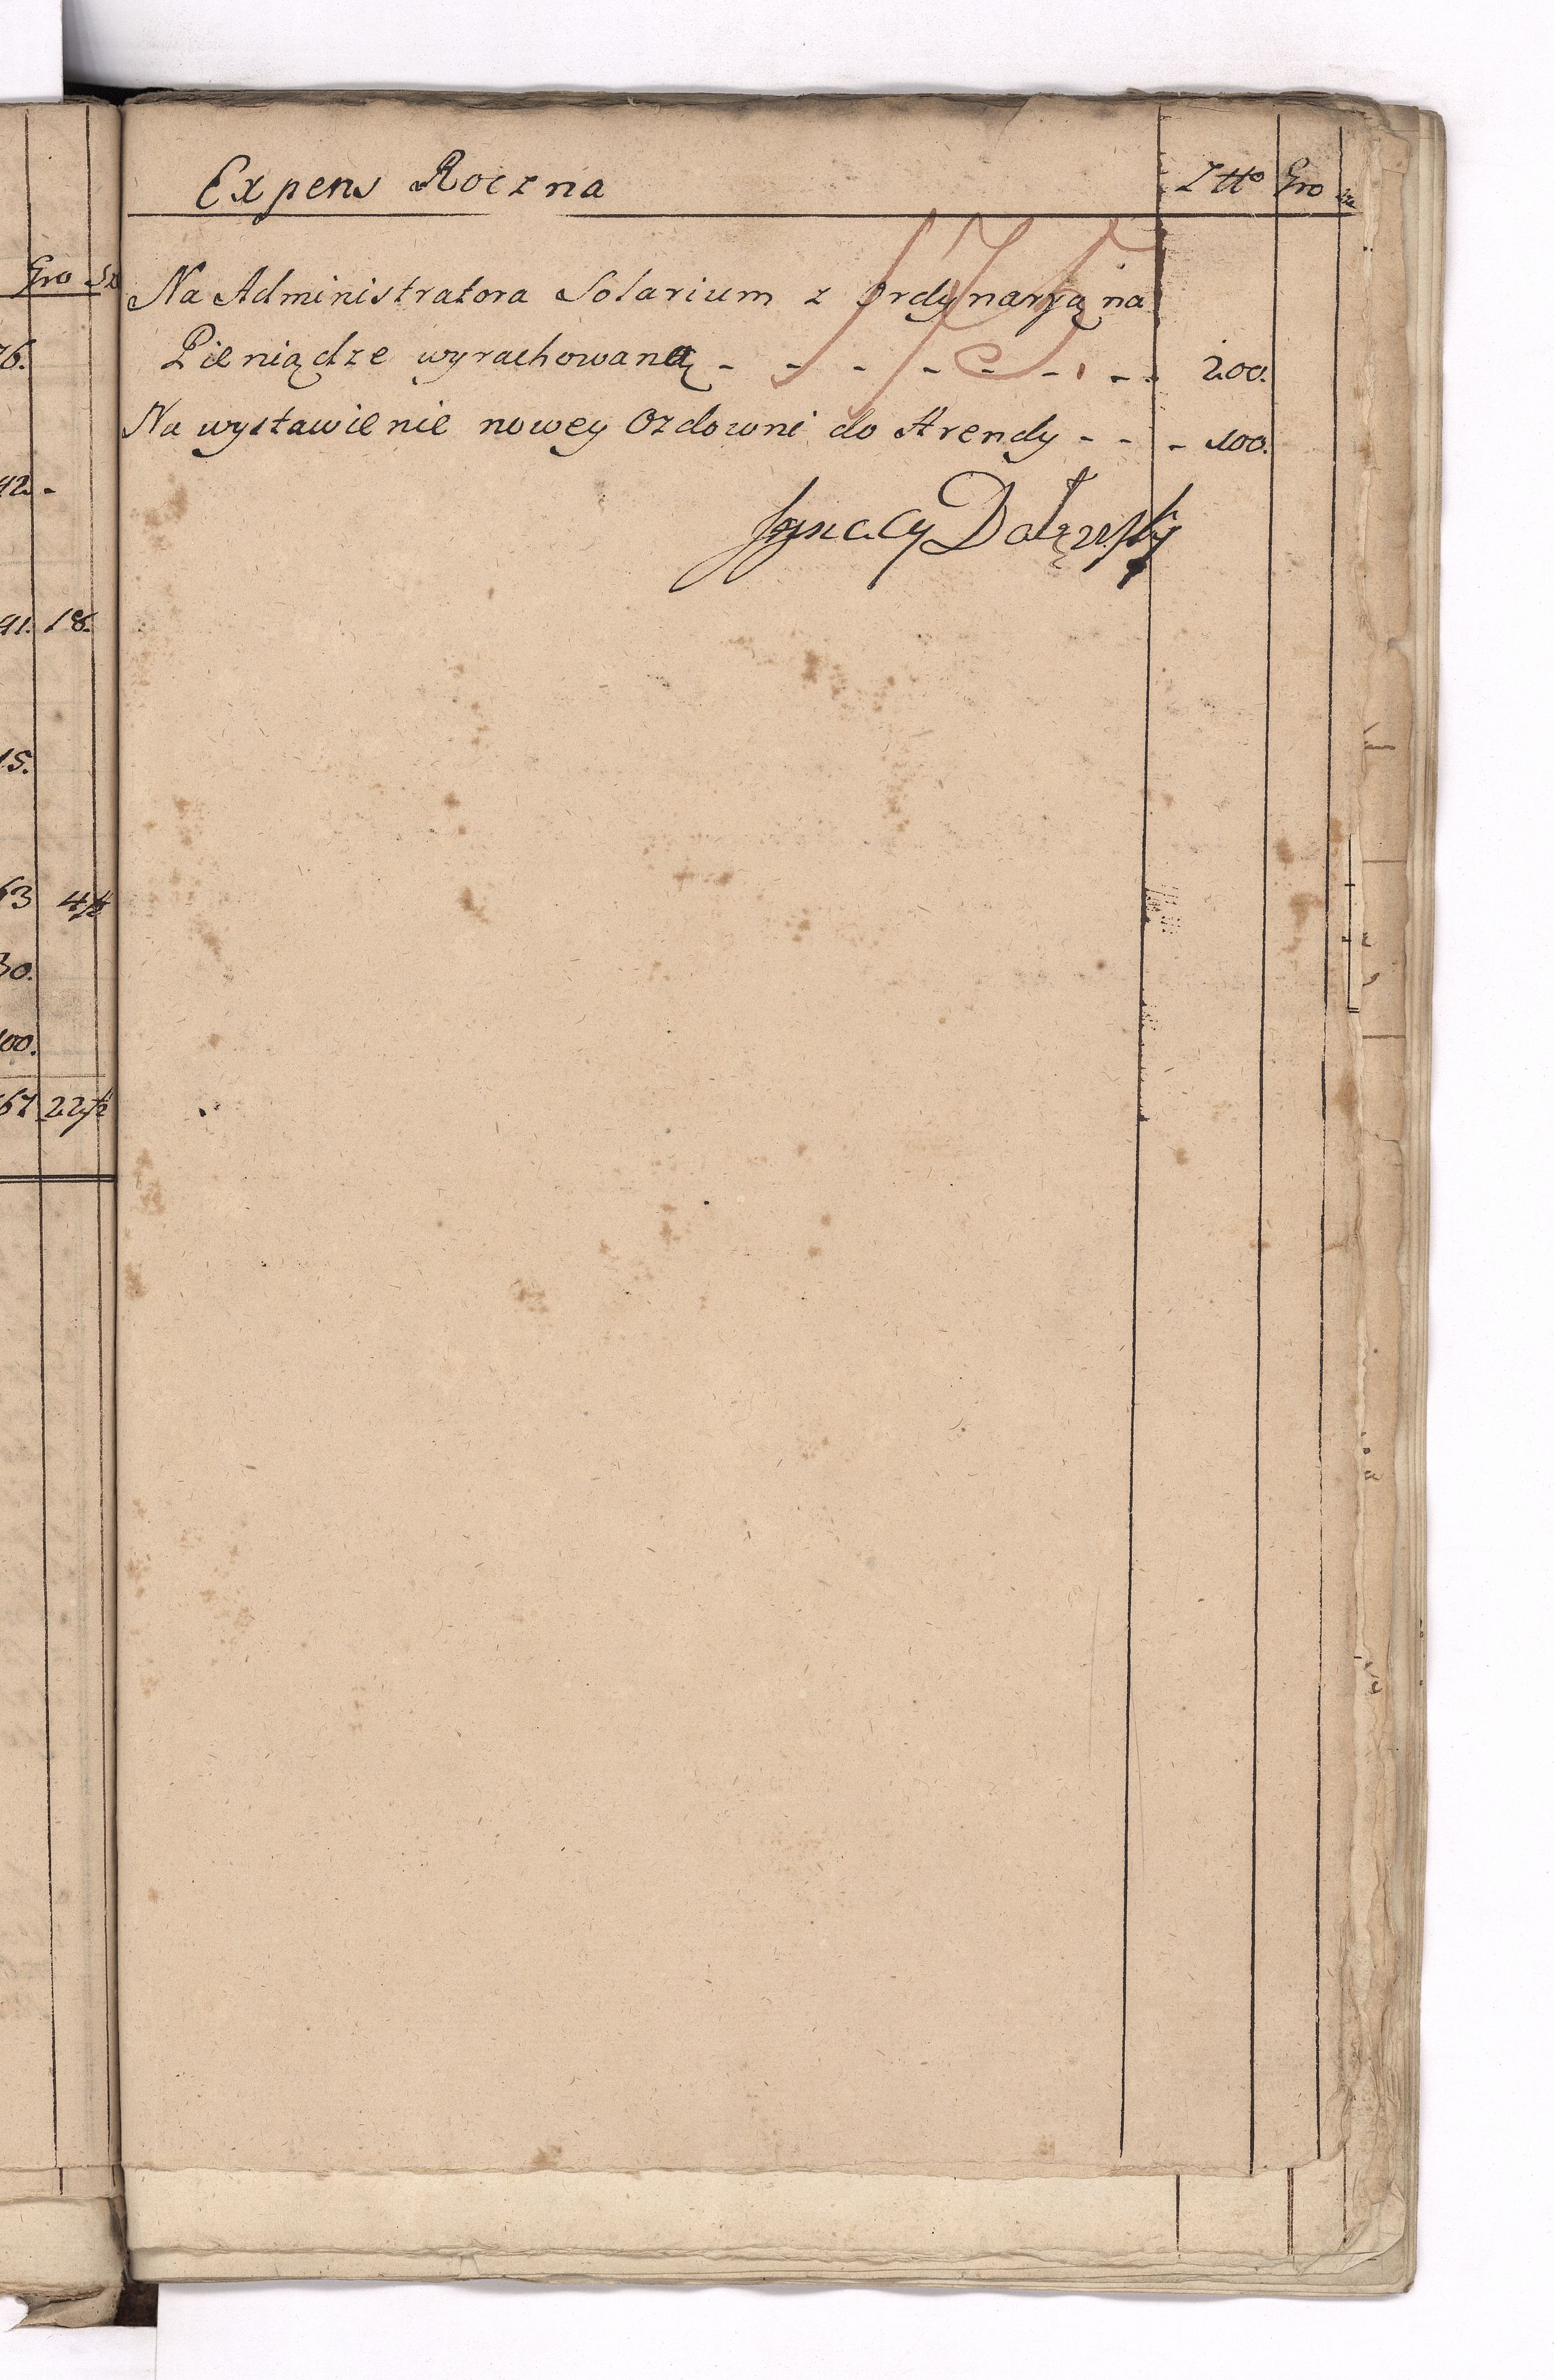 Gro Sz
76.
92.-
91. 18.
15.
63 4 1/2
30.
100.
67 22 1/2
Expens Roczna Złło Gro
175.
Na Administratora Solarium z Ordynaryą na
Pieniądze wyrachowaną - - - - - - - 200.
Na wystawienie nowey Ozdowni do Arendy - - - 100.
Ignacy